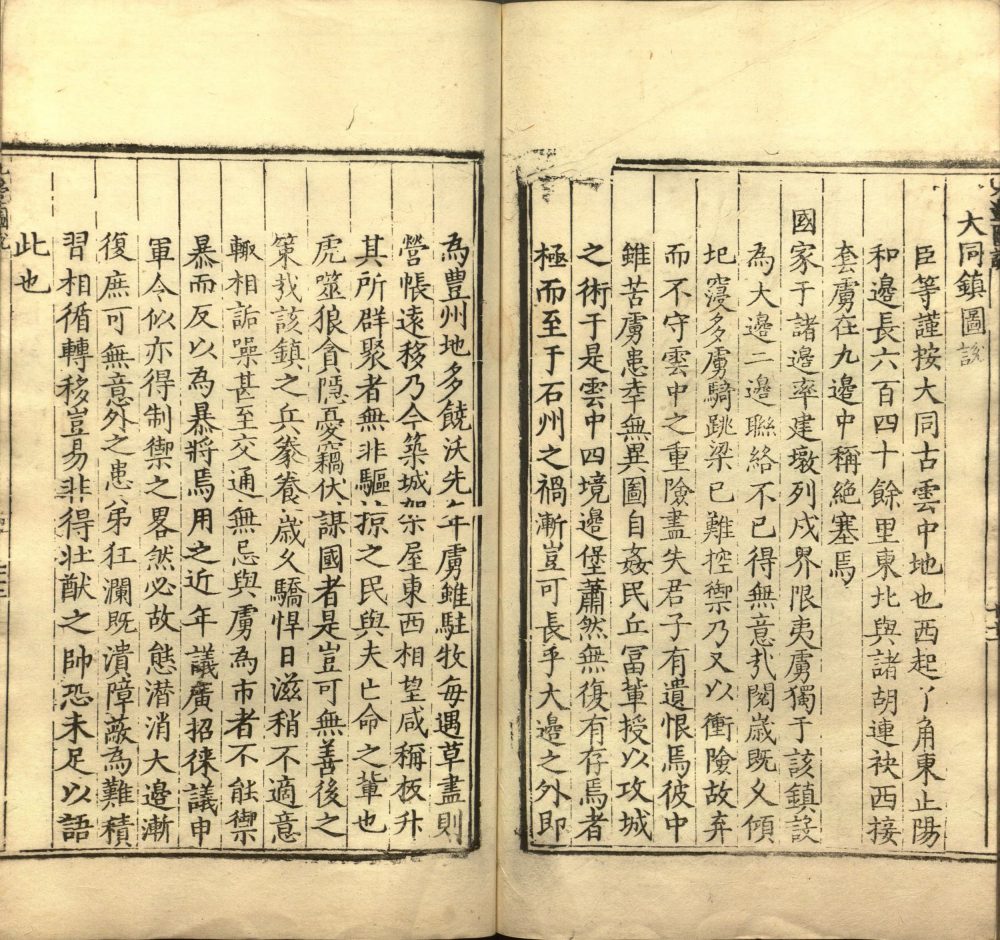 大同鎮圖說
臣等謹按大同古雲中地也西起丫角東止陽
和邊長六百四十餘里東北與諸胡連袂西接
套虜在九邊中稱絕塞焉
國家于諸邊率建墩列戍界限夷虜獨于該鎮設
為大邊二邊聯絡不已得無意乎閱歲既久傾
圮寖多虜騎跳梁已難控禦乃又以衝險故弃
而不守雲中之重險盡失君子有遺恨焉彼中
雖苦虜患李無異圖自姦民丘冨軰授以攻城
之術于是雲中四境邊堡蕭然無復有存焉者
極而至于石州之禍漸豈可長乎大邊之外即
為豊州地多饒沃先年虜雖駐牧每遇草盡則
營帳遠移乃今築城架屋東西相望咸稱板升
其所群聚者無非驅掠之民與夫亡命之輩也
虎噬狼貪隱憂竊伏謀國者是豈可無善後之
策哉該鎮之兵豢養歲久驕悍日滋稍不適意
輙相詬噪甚至交通無忌與虜為市者不能禦
暴而反以為暴將焉用之近年議廣招徠議申
軍令似亦得制禦之畧然必故態潜消大邊漸
復庶可無意外之患弟狂瀾既潰障蔽為難積
習相循轉移豈易非得壮猷之帥恐未足以語
此也